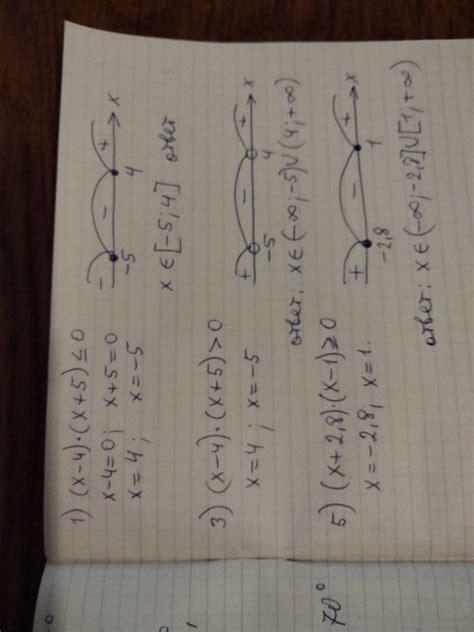 1) (x-4)·(x+5)≤0
x-4=0; x+5=0
x=4; x=-5
- - +
-5 4 x
x∈[-5;4] ответ
3) (x-4)·(x+5)>0
x=4; x=-5
+ - +
-5 4 x
ответ: x∈(-∞;-5)∪(4;+∞)
5) (x+2,8)·(x-1)≥0
x=-2,8; x=1.
+ - +
-2,8 1 x
ответ: x∈(-∞;-2,8]∪[1;+∞)
70°